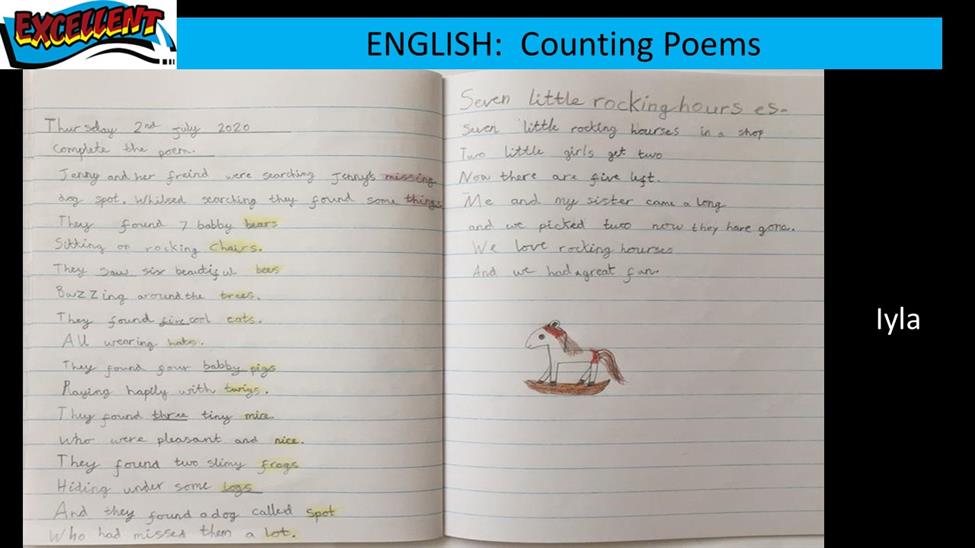 EXCELLENT
ENGLISH: Counting Poems
Thursday 2nd july 2020
Complete the poem.
Jenny and her freind were searching Jenny's missing
dog spot. Whilsed searching they found some things
They found 7 babby bears
Sitting on rocking chairs.
They saw six beautiful bees
Buzzing around the trees.
They found five cool cats.
All wearing hats.
They found four babby pigs
Playing hapily with twigs.
They found three tiny mice
Who were pleasant and nice.
They found two slimy frogs
Hiding under some logs
And they found a dog called spot
Who had missed them a lot.
Seven little rocking hours es-
Seven little rocking hourses in a shop
Two little girls get two
Now there are five left.
Me and my sister came a long
and we picked two now they have gone.
We love rocking hourses
And we had a great fun.
Iyla